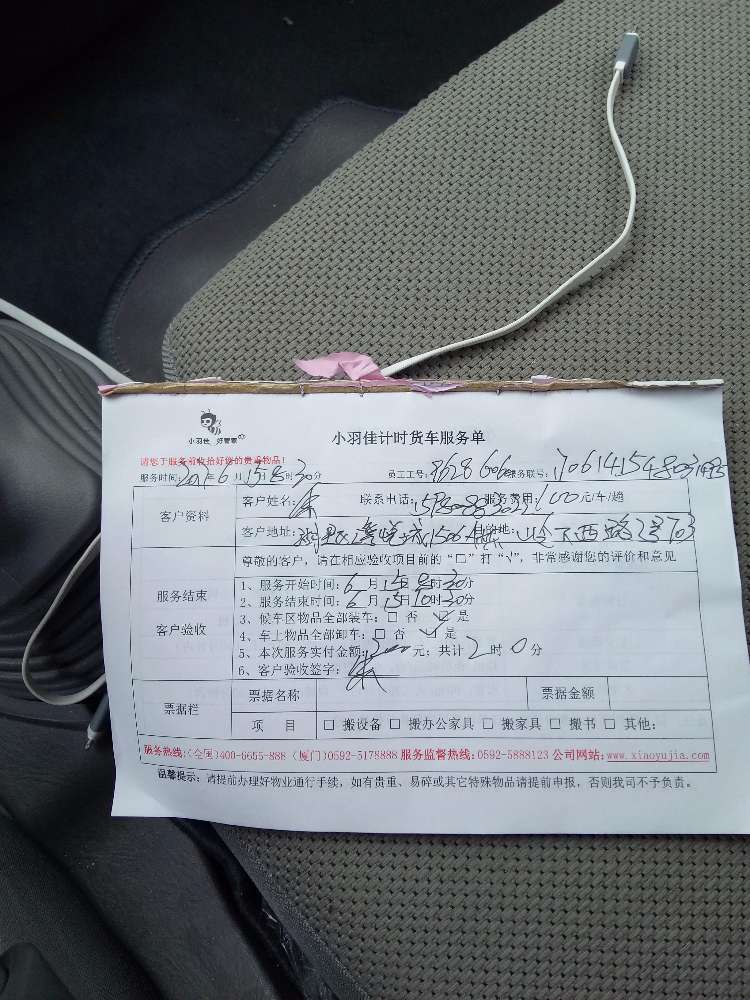 小羽佳 好管家
小羽佳计时货车服务单
请您于服务前收拾好您的贵重物品!
服务时间: 6月15日8时30分 员工工号: 服务联号:
客户资料 客户姓名: 联系电话: 服务费用: 100元/车/趟
客户地址: 1506 目的地: 西路2号703
尊敬的客户,请在相应验收项目前的“□”打“√”,非常感谢您的评价和意见
服务结束
客户验收
1、服务开始时间:6月15日8时30分
2、服务结束时间:6月15日10时30分
3、候车区物品全部装车:□ 否 ☑ 是
4、车上物品全部卸车:□ 否 ☑ 是
5、本次服务实付金额:200元;共计2时0分
6、客户验收签字:
票据栏 票据名称 票据金额
项 目 □ 搬设备 □ 搬办公家具 □ 搬家具 □ 搬书 □ 其他:
服务热线:(全国)400-6655-888 (厦门)0592-5178888 服务监督热线:0592-5888123 公司网站:www.xiaoyujia.com
温馨提示:请提前办理好物业通行手续,如有贵重、易碎或其它特殊物品请提前申报,否则我司不予负责。